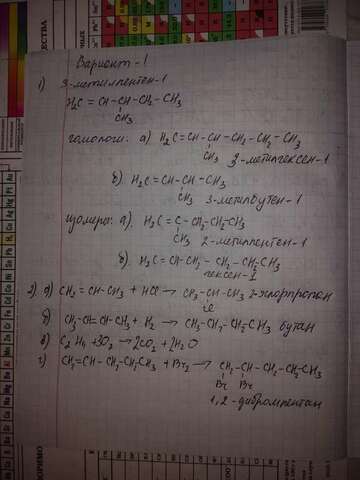 Вариант-1
1) 3-метилпентен-1
H₂C = CH-CH-CH₂-CH₃
CH₃
гомологи: а) H₂C=CH-CH-CH₂-CH₂-CH₃
CH₃ 3-метилгексен-1
б) H₂C=CH-CH-CH₃
CH₃ 3-метилбутен-1
изомеры: а) H₂C=C-CH₂-CH₂-CH₃
CH₃ 2-метилпентен-1
б) H₂C=CH-CH₂-CH₂-CH₂-CH₃
гексен-1
2) а) CH₂=CH-CH₃ + HCl → CH₃-CH-CH₃ 2-хлорпропан
Cl
б) CH₃-CH=CH-CH₃ + H₂ → CH₃-CH₂-CH₂-CH₃ бутан
в) C₂H₄+3O₂ → 2CO₂ + 2H₂O
г) CH₂=CH-CH₂-CH₂-CH₃ + Br₂ → CH₂-CH-CH₂-CH₂-CH₃
Br Br
1,2-дибромпентан